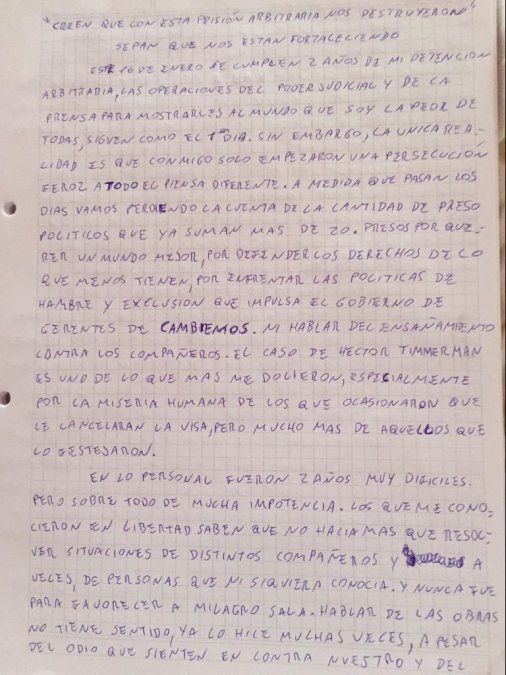 "CREEN QUE CON ESTA PRISIÓN ARBITRARIA NOS DESTRUYERON"
SEPAN QUE NOS ESTAN FORTALECIENDO
ESTE 16 DE ENERO SE CUMPLEN 2 AÑOS DE MI DETENCION
ARBITRARIA, LAS OPERACIONES DEL PODER JUDICIAL Y DE LA
PRENSA PARA MOSTRARLES AL MUNDO QUE SOY LA PEOR DE
TODAS, SIGUEN COMO EL 1º DIA. SIN EMBARGO, LA UNICA REA-
LIDAD ES QUE CONMIGO SOLO EMPEZARON UNA PERSECUCIÓN
FEROZ A TODO EL PIENSA DIFERENTE. A MEDIDA QUE PASAN LOS
DIAS VAMOS PERDIENDO LA CUENTA DE LA CANTIDAD DE PRESO
POLITICOS QUE YA SUMAN MAS DE 20. PRESOS POR QUE-
RER UN MUNDO MEJOR, POR DEFENDER LOS DERECHOS DE LO
QUE MENOS TIENEN, POR ENFRENTAR LAS POLITICAS DE
HAMBRE Y EXCLUSION QUE IMPULSA EL GOBIERNO DE
GERENTES DE CAMBIEMOS. NI HABLAR DEL ENSAÑAMIENTO
CONTRA LOS COMPAÑEROS. EL CASO DE HECTOR TIMMERMAN
ES UNO DE LO QUE MAS ME DOLIERON, ESPECIALMENTE
POR LA MISERIA HUMANA DE LOS QUE OCASIONARON QUE
LE CANCELARAN LA VISA, PERO MUCHO MAS DE AQUELLOS QUE
LO FESTEJARON.
EN LO PERSONAL FUERON 2 AÑOS MUY DIFICILES.
PERO SOBRE TODO DE MUCHA IMPOTENCIA. LOS QUE ME CONO-
CIERON EN LIBERTAD SABEN QUE NO HACIA MAS QUE RESOL-
VER SITUACIONES DE DISTINTOS COMPAÑEROS Y A
VECES, DE PERSONAS QUE NI SIQUIERA CONOCIA. Y NUNCA FUE
PARA FAVORECER A MILAGRO SALA. HABLAR DE LAS OBRAS
NO TIENE SENTIDO, YA LO HICE MUCHAS VECES, A PESAR
DEL ODIO QUE SIENTEN EN CONTRA NUESTRO Y DEL